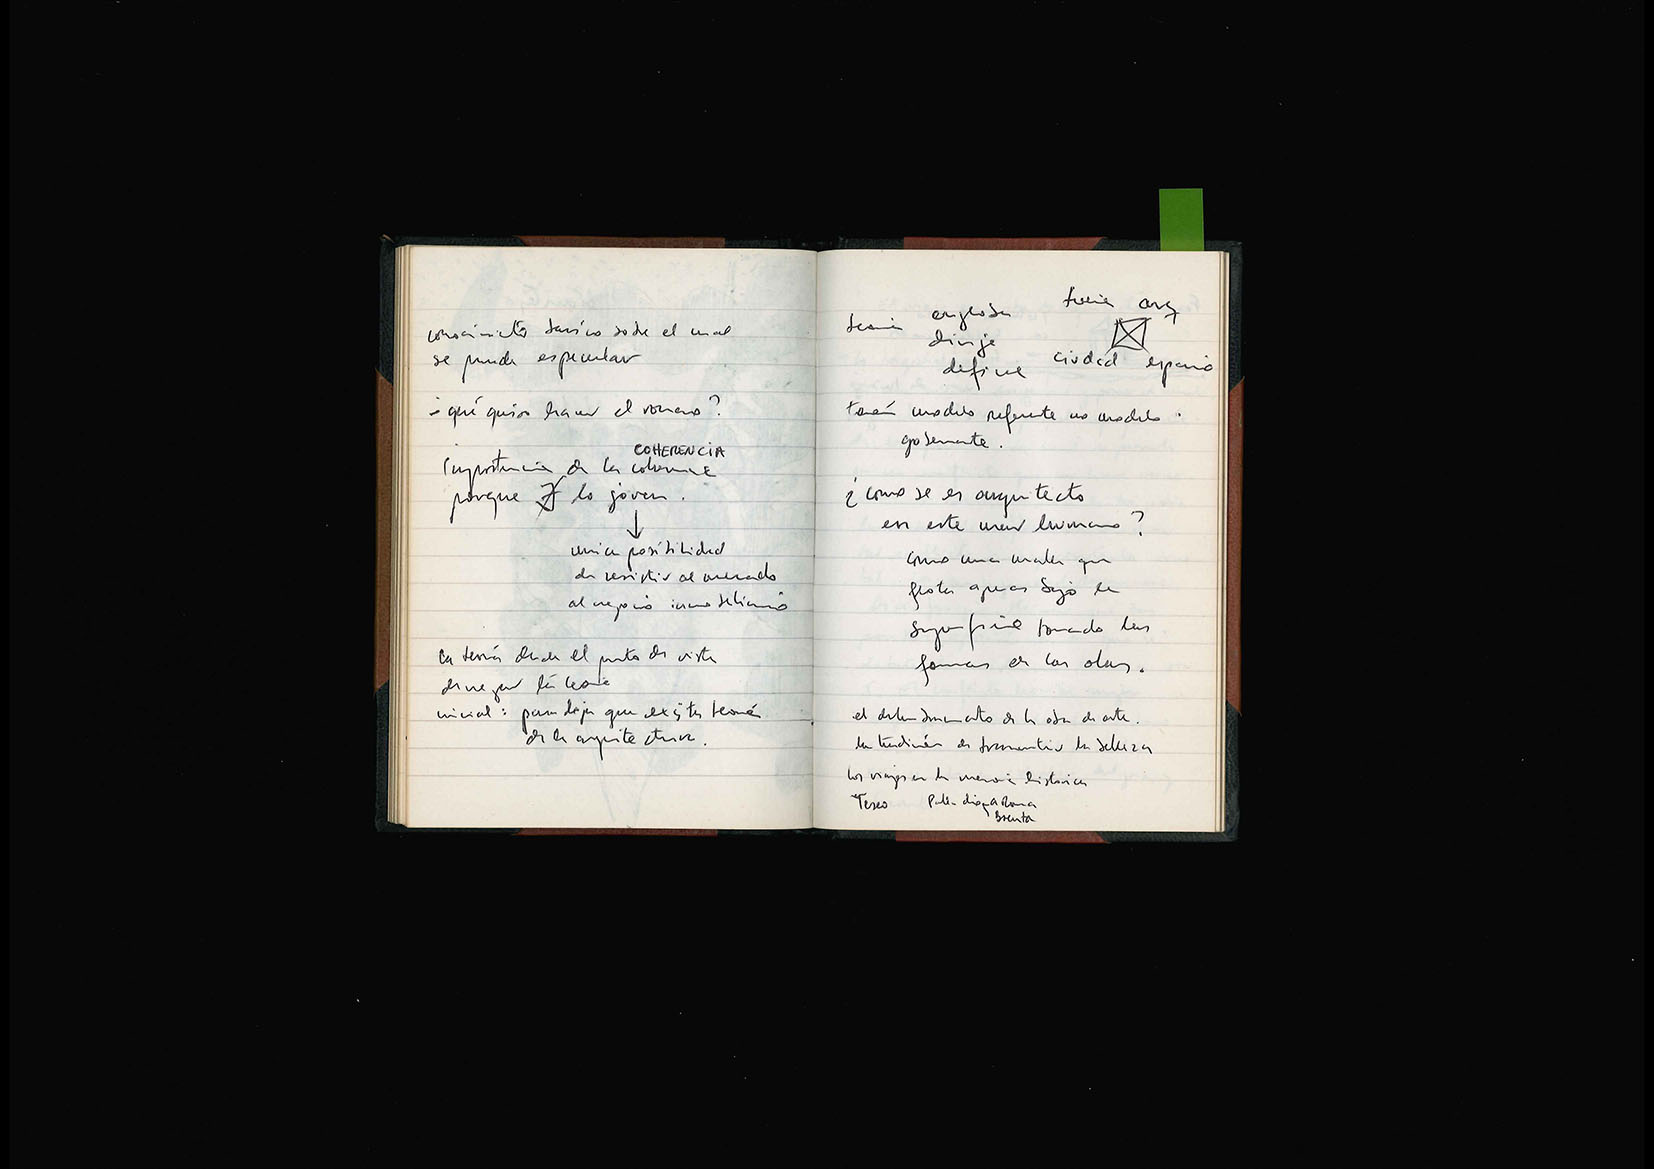 conocimiento básico sobre el cual
se puede especular
¿qué quiso hacer el romano?
COHERENCIA
importancia de la columna
porque lo joven.
única posibilidad
de resistir al mercado
al negocio inmobiliario
la teoría desde el punto de vista
de negar la
inicial: que exista teoría
de la arquitectura.
teoría engloba
dirije
define
teoría arq
ciudad espacio
modelo referente no modelo
gobernante.
¿como se es arquitecto
en este mar humano?
como una malla que
flota apenas bajo la
superficie tomando las
formas de las olas.
el de la obra de arte.
la tradición de la belleza
los viajes en la memoria histórica
Teseo Roma
Brenta